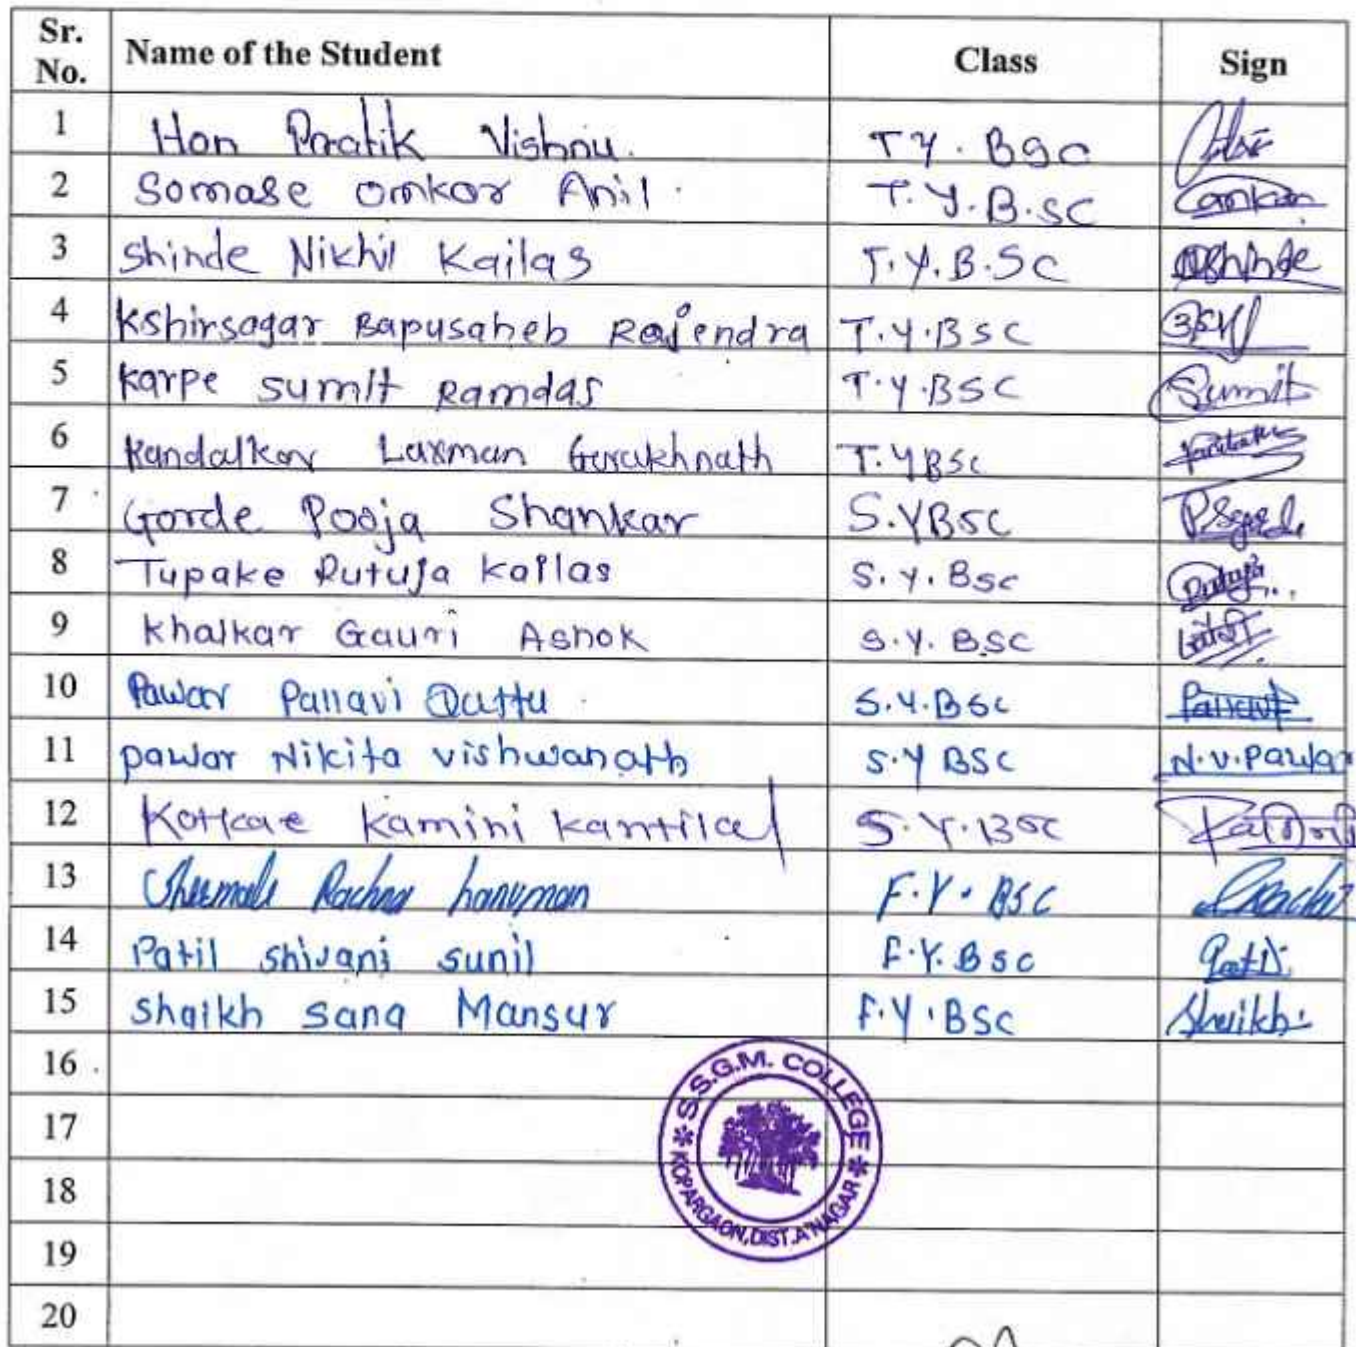 Sr. No. Name of the Student Class Sign
1 Hon Pratik Vishnu. T Y. BSC
2 Somase Omkar Anil. T. Y. B. SC Omkar
3 Shinde Nikhil Kailas T. Y. B. SC NShinde
4 Kshirsagar Bapusaheb Rajendra T. Y. BSC
5 Karpe Sumit Ramdas T. Y. BSC Sumit
6 Kandalkar Laxman Gorakhnath T. YBSC
7 Gorde Pooja Shankar S. YBSC
8 Tupake Rutuja Kailas S. Y. BSC Rutuja
9 Khalkar Gauri Ashok S. Y. BSC
10 Pawar Pallavi Dattu S. Y. BSC Pallavi
11 pawar Nikita vishwanath S. Y BSC N. V. Pawar
12 Kamini Kantilal S. Y. BSC
13 Rachna hanuman F. Y. BSC
14 Patil shivani sunil F. Y. BSC Patil
15 Shaikh Sana Mansur F. Y. BSC Shaikh
16
17
18
19
20
S.S.G.M. COLLEGE
KOPARGAON, DIST. A'NAGAR